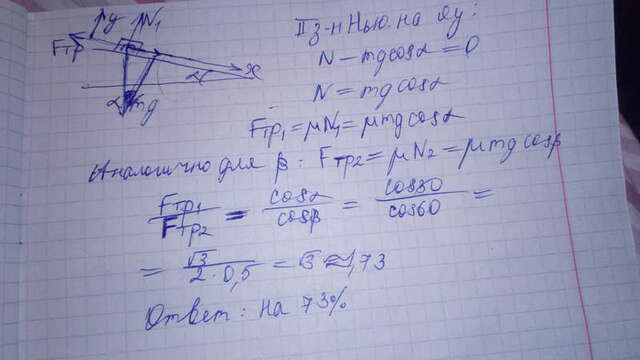 y N₁
Fтр
α x
α mg
II з-н Нью. на Oy:
N - mgcosα = 0
N = mgcosα
Fтр₁ = μN₁ = μmgcosα
Аналогично для β: Fтр₂ = μN₂ = μmgcosβ
Fтр₁/Fтр₂ = cosα/cosβ = cos30/cos60 =
= √3/2·0,5 = √3 ≈ 1,73
Ответ: на 73%